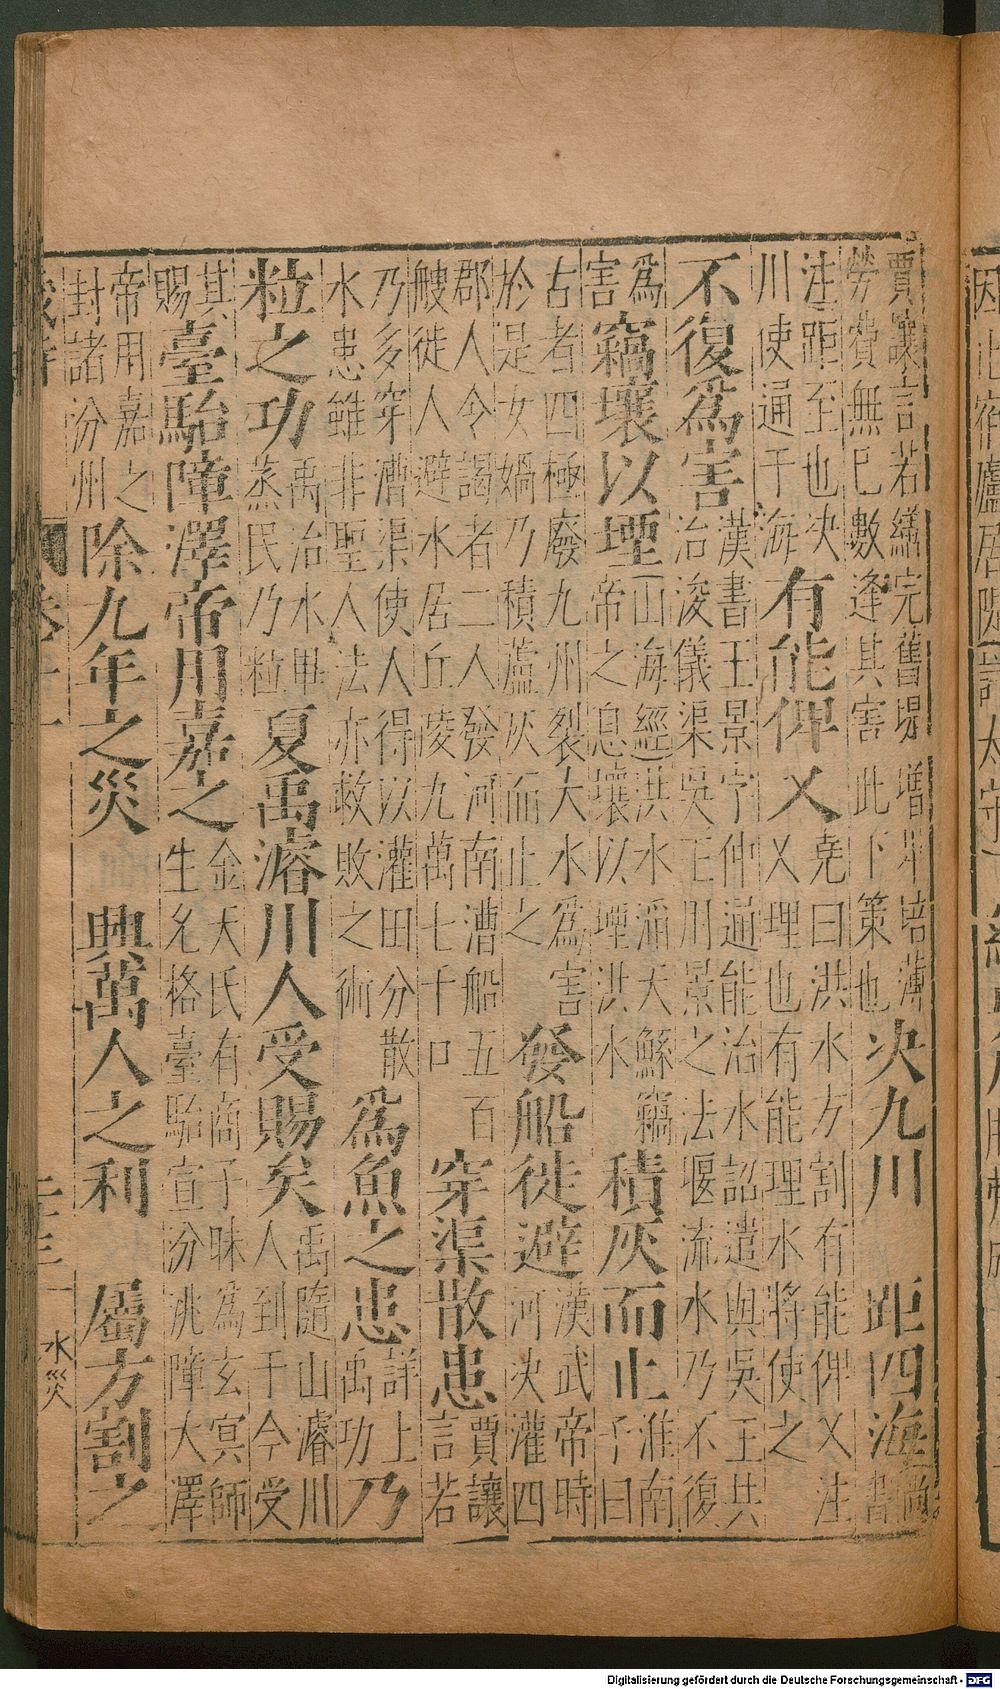 賈讓言若繕完舊堤增卑培薄
勞費無已數逢其害此下策也
决九川 距四海
尚
書
注距至也决
川使通于海
有能俾乂
堯曰洪水方割有能俾乂注
乂理也有能理水將使之
不復爲害
漢書王景字仲通能治水詔遣與吳王共
治浚儀渠吳王用景之法堰流水乃不復
爲
害
竊壤以堙
(山海經)洪水滔天鯀竊
帝之息壤以堙洪水
積灰而止
淮南
子曰
古者四極廢九州裂大水爲害
於是女媧乃積蘆灰而止之
發船徙避
漢武帝時
河决灌四
郡人令謁者二人發河南漕船五百
艘徙人避水居丘陵九萬七十口
穿渠散患
賈讓
言若
乃多穿漕渠使人得以灌田分散
水患雖非聖人法亦救敗之術
爲魚之患
詳上
禹功
乃
粒之功
禹治水畢
蒸民乃粒
夏禹濬川人受賜矣
禹隨山濬川
人到于今受
其
賜
臺駘障澤帝用嘉之
金天氏有商子味爲玄冥師
生允格臺駘宣汾洮障大澤
帝用嘉之
封諸汾州
除九年之災 興萬人之利 屬方割之
水災
Digitalisierung gefördert durch die Deutsche Forschungsgemeinschaft - DFG